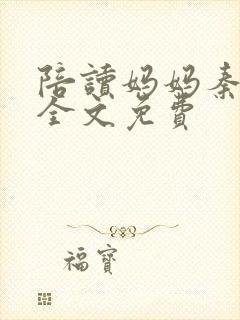 陪讀媽媽秦
全文免費
福寶